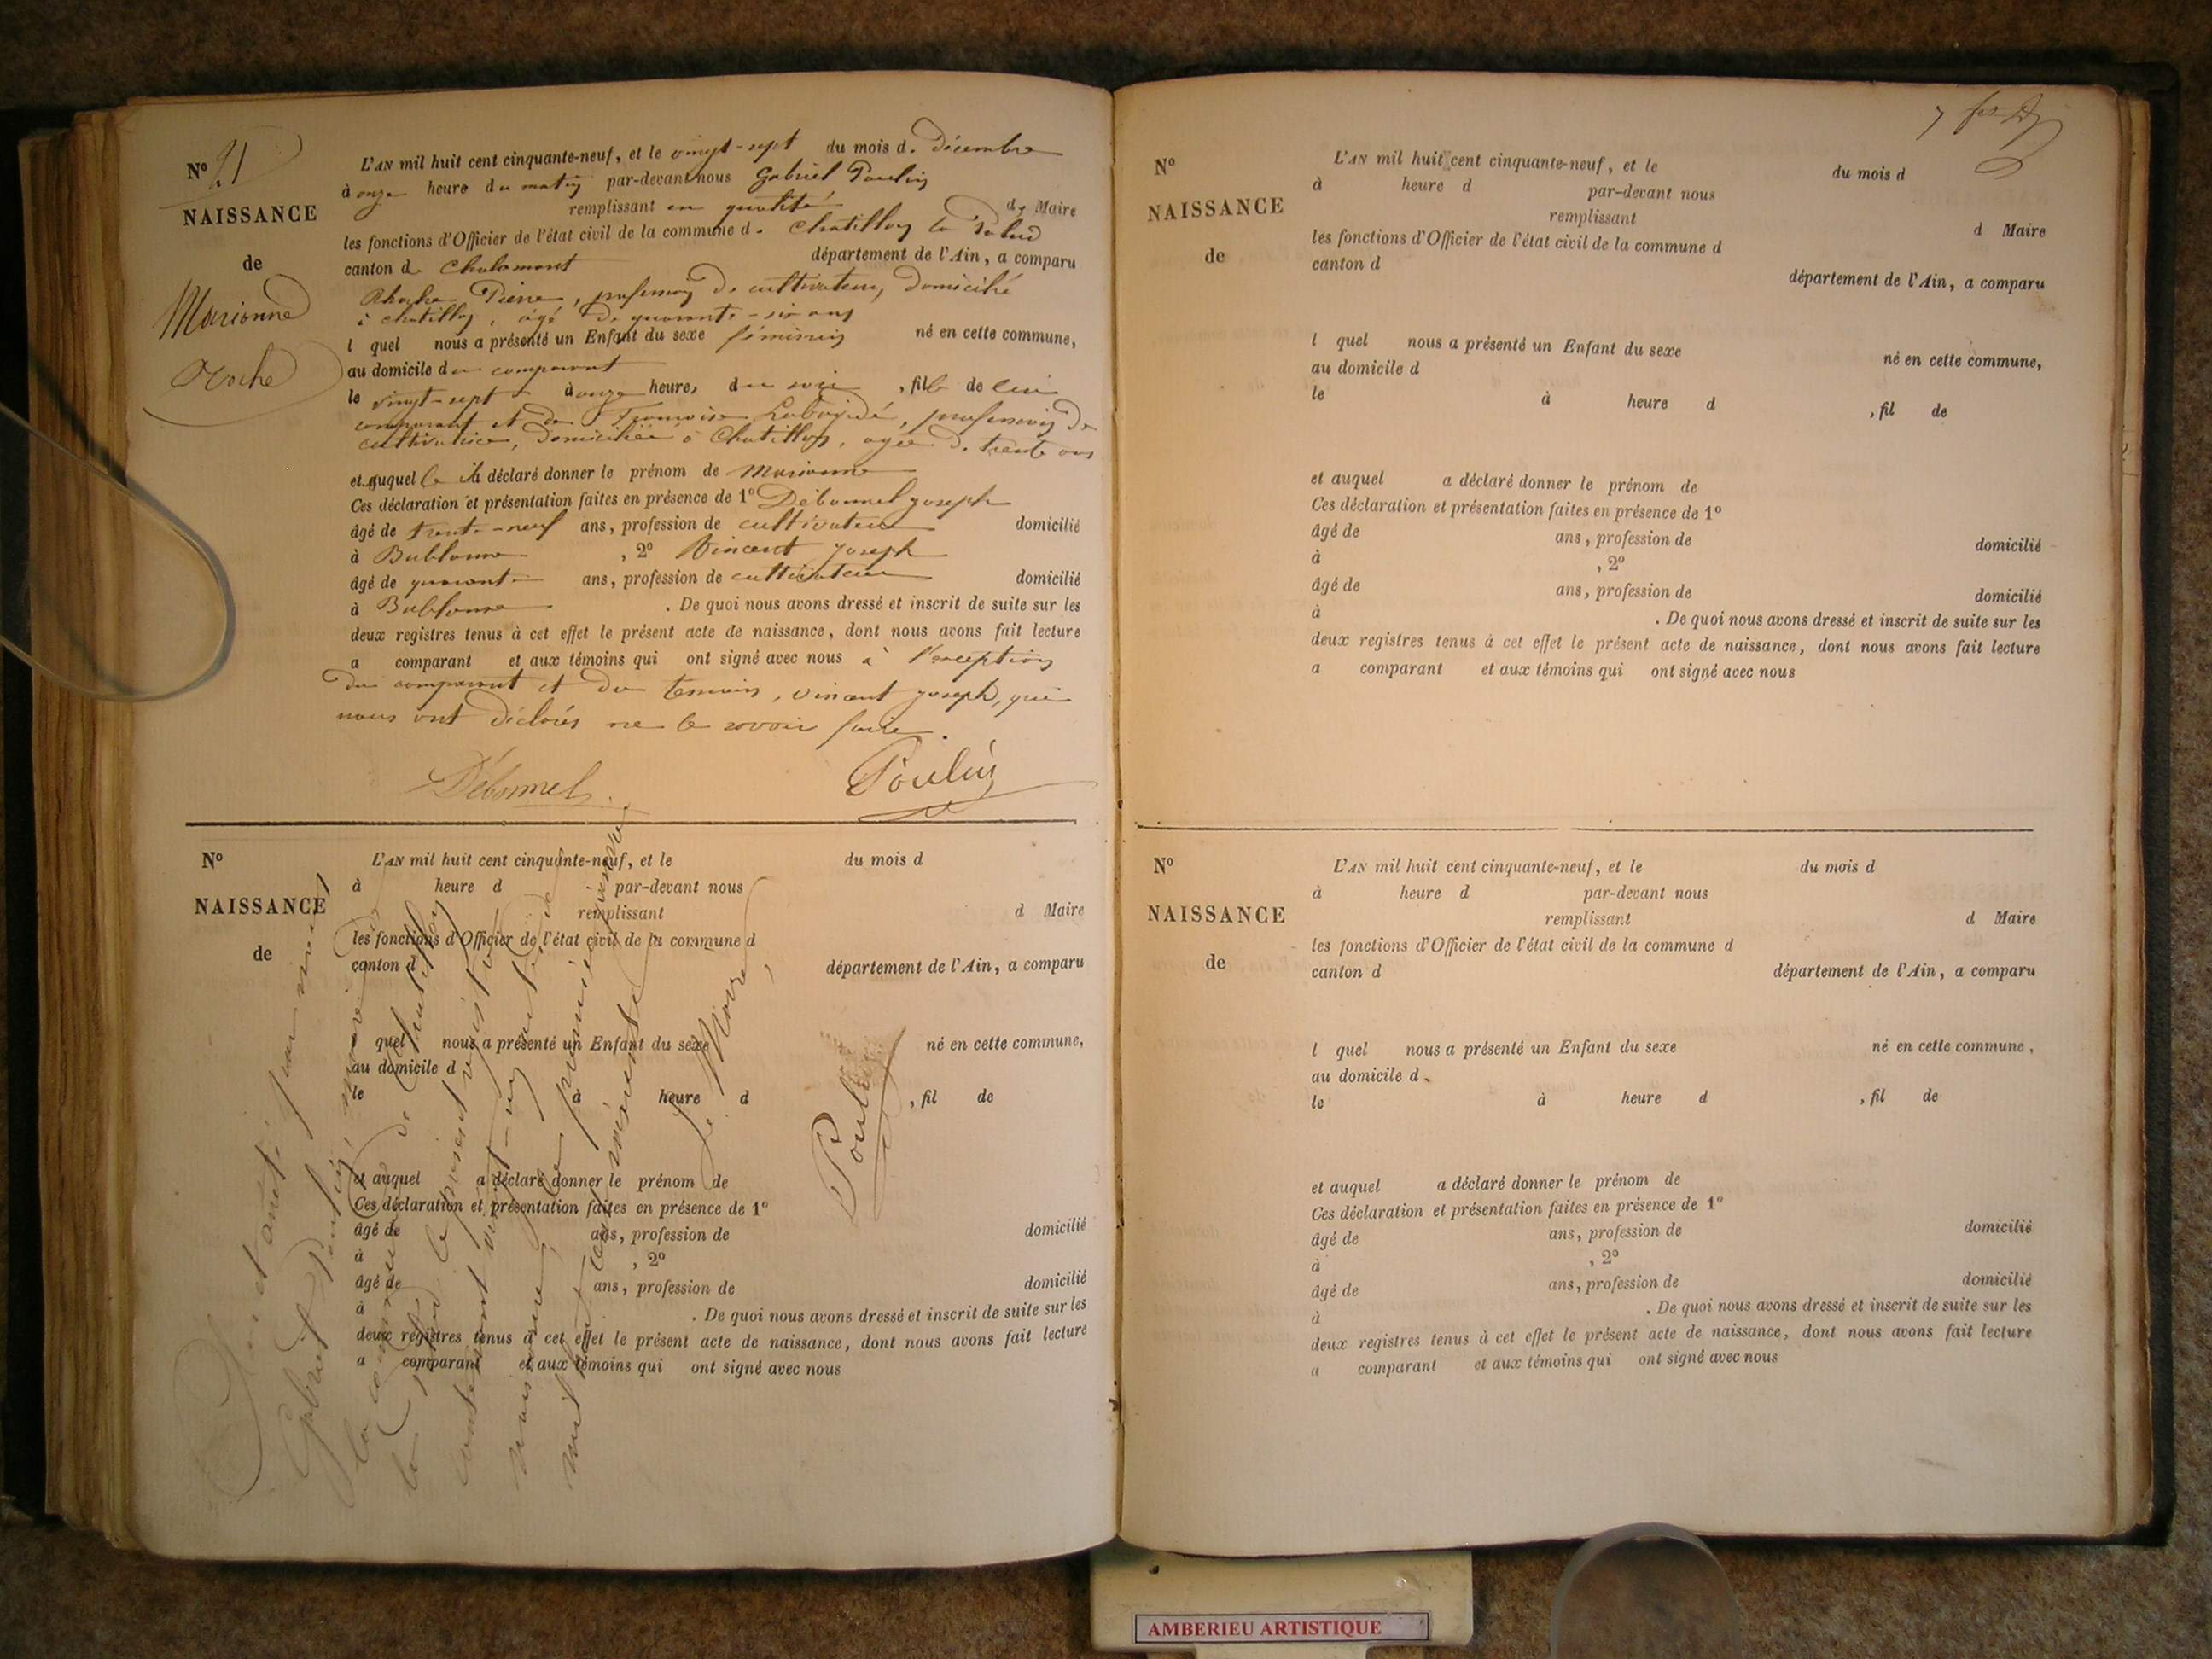 N° 21
NAISSANCE
de
Marianne
Roche
L'AN mil huit cent cinquante-neuf, et le vingt-sept du mois de Décembre
à onze heure du matin par-devant nous Gabriel Poulin
remplissant en qualité de Maire
les fonctions d'Officier de l'état civil de la commune de Chatillon la Palud
canton de Chalamont département de l'Ain, a comparu
Pierre, profession de cultivateur, domicilié
à chatillon, âgé de quarante-six ans
l quel nous a présenté un Enfant du sexe féminin né en cette commune,
au domicile du comparant
le vingt-sept à onze heure, du soir, fille de lui
comparant et de Françoise, profession de
cultivatrice, domiciliée à Chatillon, agée de trente ans
et auquel le il a déclaré donner le prénom de Marianne
Ces déclaration et présentation faites en présence de 1° Debonnel joseph
âgé de trente-neuf ans, profession de cultivateur domicilié
à Bublanne, 2° Vincent joseph
âgé de quarante ans, profession de cultivateur domicilié
à Bublanne. De quoi nous avons dressé et inscrit de suite sur les
deux registres tenus à cet effet le présent acte de naissance, dont nous avons fait lecture
a comparant et aux témoins qui ont signé avec nous à l'exception
du comparant et du temoin, vincent joseph, qui
nous ont déclarés ne le savoir faire.
Debonnel Poulin
N°
NAISSANCE
de
L'AN mil huit cent cinquante-neuf, et le du mois d
à heure d par-devant nous
remplissant d Maire
les fonctions d'Officier de l'état civil de la commune d
canton d département de l'Ain, a comparu
l quel nous a présenté un Enfant du sexe né en cette commune,
au domicile d
le à heure d , fil de
et auquel a déclaré donner le prénom de
Ces déclaration et présentation faites en présence de 1°
âgé de ans, profession de domicilié
à , 2°
âgé de ans, profession de domicilié
à . De quoi nous avons dressé et inscrit de suite sur les
deux registres tenus à cet effet le présent acte de naissance, dont nous avons fait lecture
a comparant et aux témoins qui ont signé avec nous
Clos et arrêté par nous
Gabriel Poulin, maire de
la commune de Chatillon
la Palud le présent registre
contenant vingt-un actes de
naissance, le premier janvier
mil huit cent soixante
Le Maire,
Poulin
N°
NAISSANCE
de
L'AN mil huit cent cinquante-neuf, et le du mois d
à heure d par-devant nous
remplissant d Maire
les fonctions d'Officier de l'état civil de la commune d
canton d département de l'Ain, a comparu
l quel nous a présenté un Enfant du sexe né en cette commune,
au domicile d
le à heure d , fil de
et auquel a déclaré donner le prénom de
Ces déclaration et présentation faites en présence de 1°
âgé de ans, profession de domicilié
à , 2°
âgé de ans, profession de domicilié
à . De quoi nous avons dressé et inscrit de suite sur les
deux registres tenus à cet effet le présent acte de naissance, dont nous avons fait lecture
a comparant et aux témoins qui ont signé avec nous
N°
NAISSANCE
de
L'AN mil huit cent cinquante-neuf, et le du mois d
à heure d par-devant nous
remplissant d Maire
les fonctions d'Officier de l'état civil de la commune d
canton d département de l'Ain, a comparu
l quel nous a présenté un Enfant du sexe né en cette commune,
au domicile d
le à heure d , fil de
et auquel a déclaré donner le prénom de
Ces déclaration et présentation faites en présence de 1°
âgé de ans, profession de domicilié
à , 2°
âgé de ans, profession de domicilié
à . De quoi nous avons dressé et inscrit de suite sur les
deux registres tenus à cet effet le présent acte de naissance, dont nous avons fait lecture
a comparant et aux témoins qui ont signé avec nous
AMBERIEU ARTISTIQUE